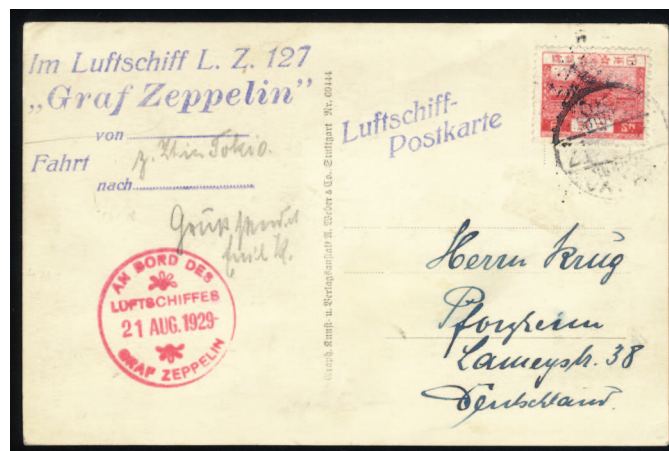 Im Luftschiff L. Z. 127
„Graf Zeppelin”
von
z. Zt in Tokio.
Fahrt
nach
Gruß sendet
Emil
AN BORD DES
LUFTSCHIFFES
21 AUG. 1929
GRAF ZEPPELIN
Graph. Kunst- u. Verlagsanstalt A. Weber & Co., Stuttgart Nr. 60444
Luftschiff-
Postkarte
Herrn Krug
Pforzheim
Lameystr. 38
Deutschland.